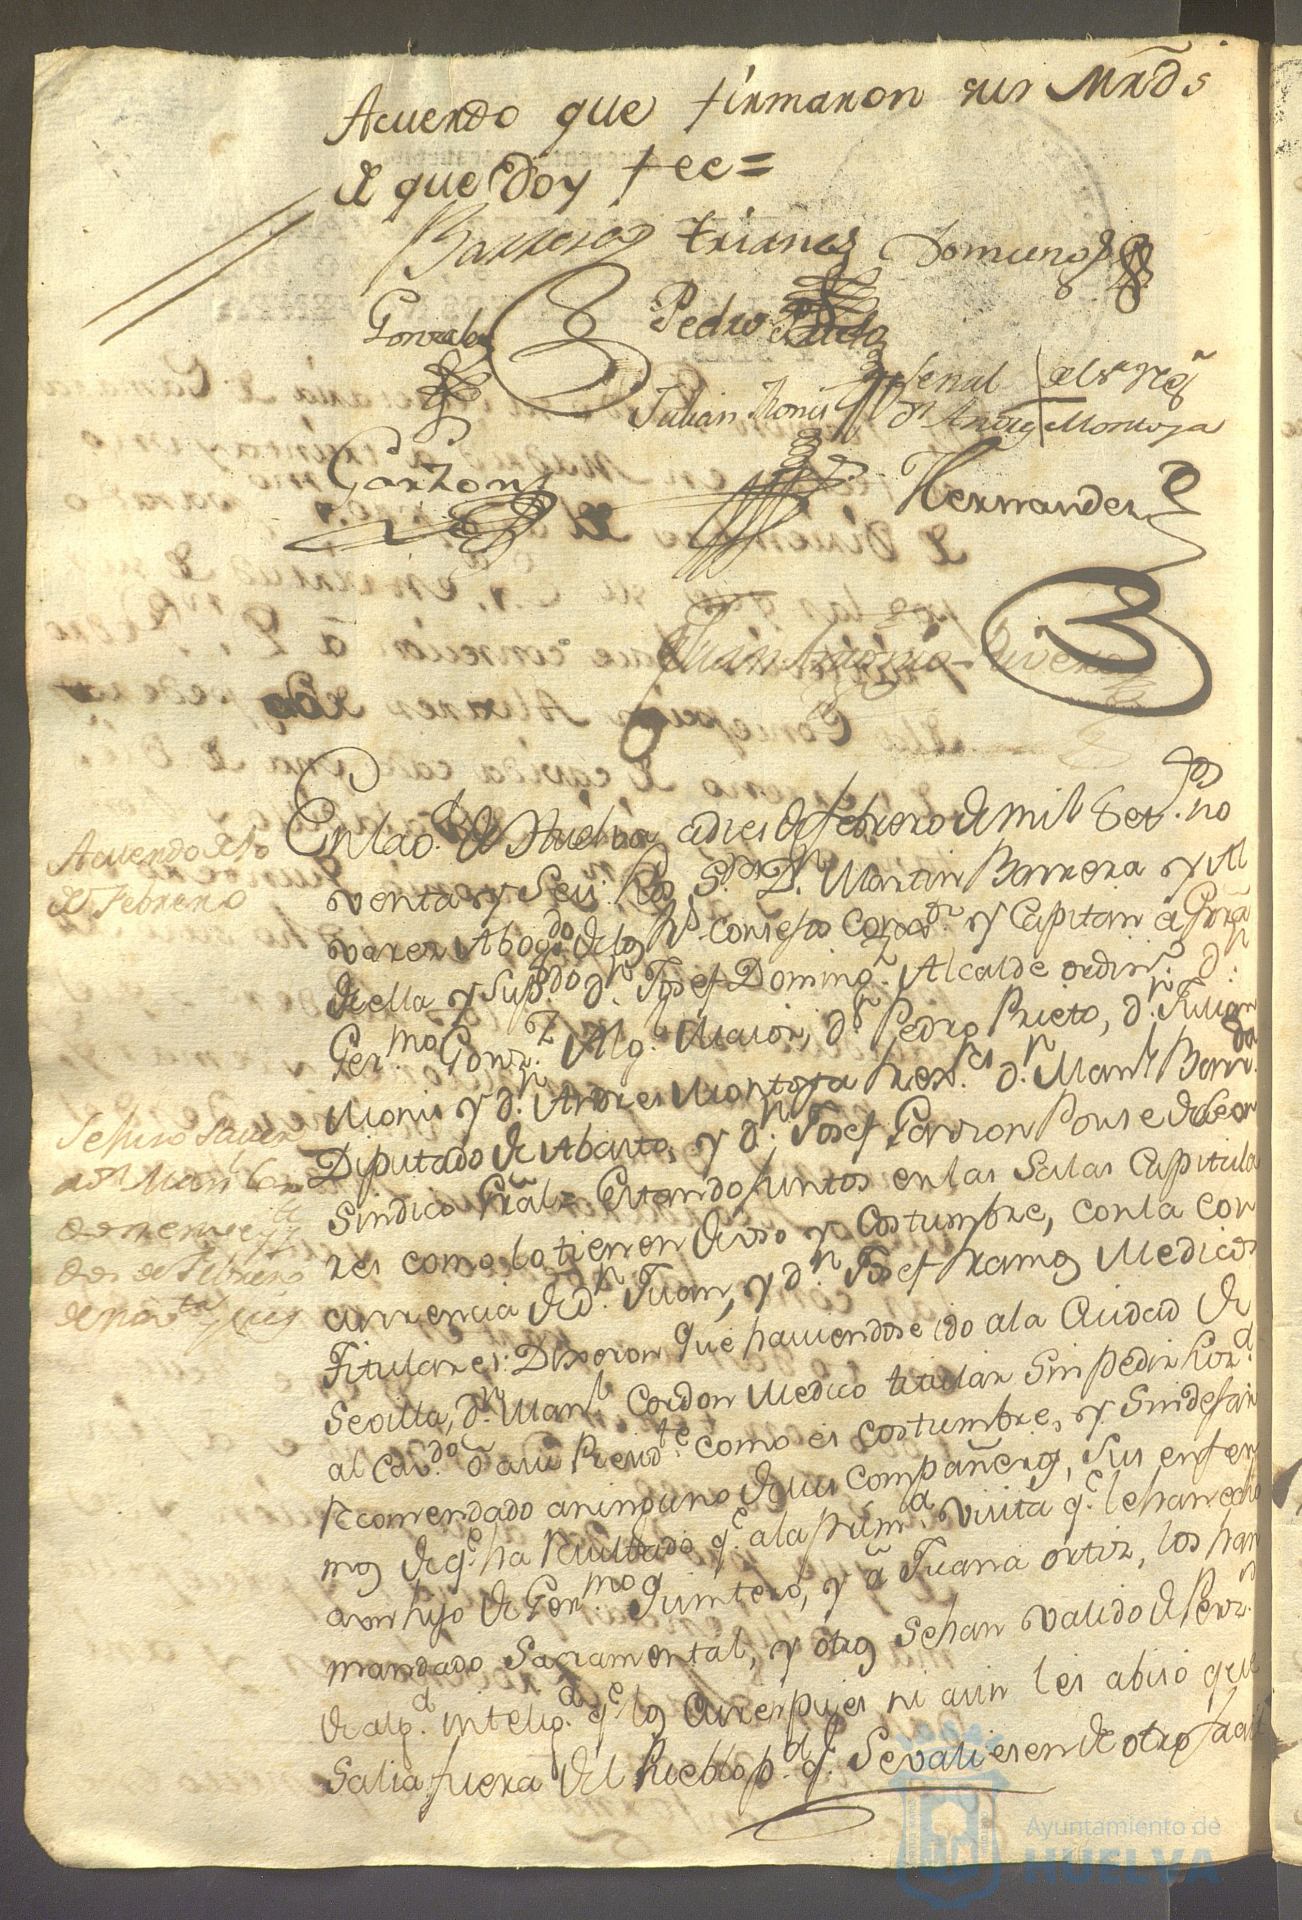 Acuerdo que firmaron sus Mrds
de que Doy fee =
Barrera Triana Doming.z
Gonzalez Pedro Prieto
Julian Monis señal del Sr Regr
Dn Andres Montoya
Garzon Hernandez
Juan Antonio Rivera
Acuerdo de 10
de Febrero
En la v.a de Huelva a dies de febrero de mil Set.os no
venta y Seis: Los S.res D.n Martin Barrera y Al
varez Abog.do de los R.s consejos Corex.or y Capitan a Grra
de ella y Sup.do d.n Josef Doming.z Alcalde ordin.o d.n
Ger.mo Gonz.z Alg.l Maior, d.n Pedro Prieto, d.n Julian
Monis y d.n Andres Montoya Rex.res d.n Man.l Barr.da
Diputado de Abasto, y d.n Josef Garzon Ponse de Leon
Sindico Gral= Estando juntos en las Salas Capitula
res como lo tienen de uso y Costumbre, con la con
currencia de d.n Juan, y d.n Josef Ramos Medicos
Titulares: Dixeron que haviendose ido a la Ciudad de
Sevilla, d.n Man.l Cordon Medico titular Sin pedir lix.a
al Cav.do o a su Presid.te como es costumbre, y Sin dejar
recomendado a ninguno de sus compañeros, Sus enfer
mos de q.e ha resultado q.e a la prim.a visita q.e le han echo
a un hijo de Ger.mo Quintero, y a Juana Ortiz, los han
mandado Sacramental, y otros Se han valido de Pers.s
de alg.a intelig.a q.e los Cure, pues ni aun les abiso que
Salia fuera del Pueblo p.a q.e Se valiesen de otro facult
Se hiso saver
a Dn Manl Cordon
de Febrero
de nov.ta y seis
Ayuntamiento de
HUELVA